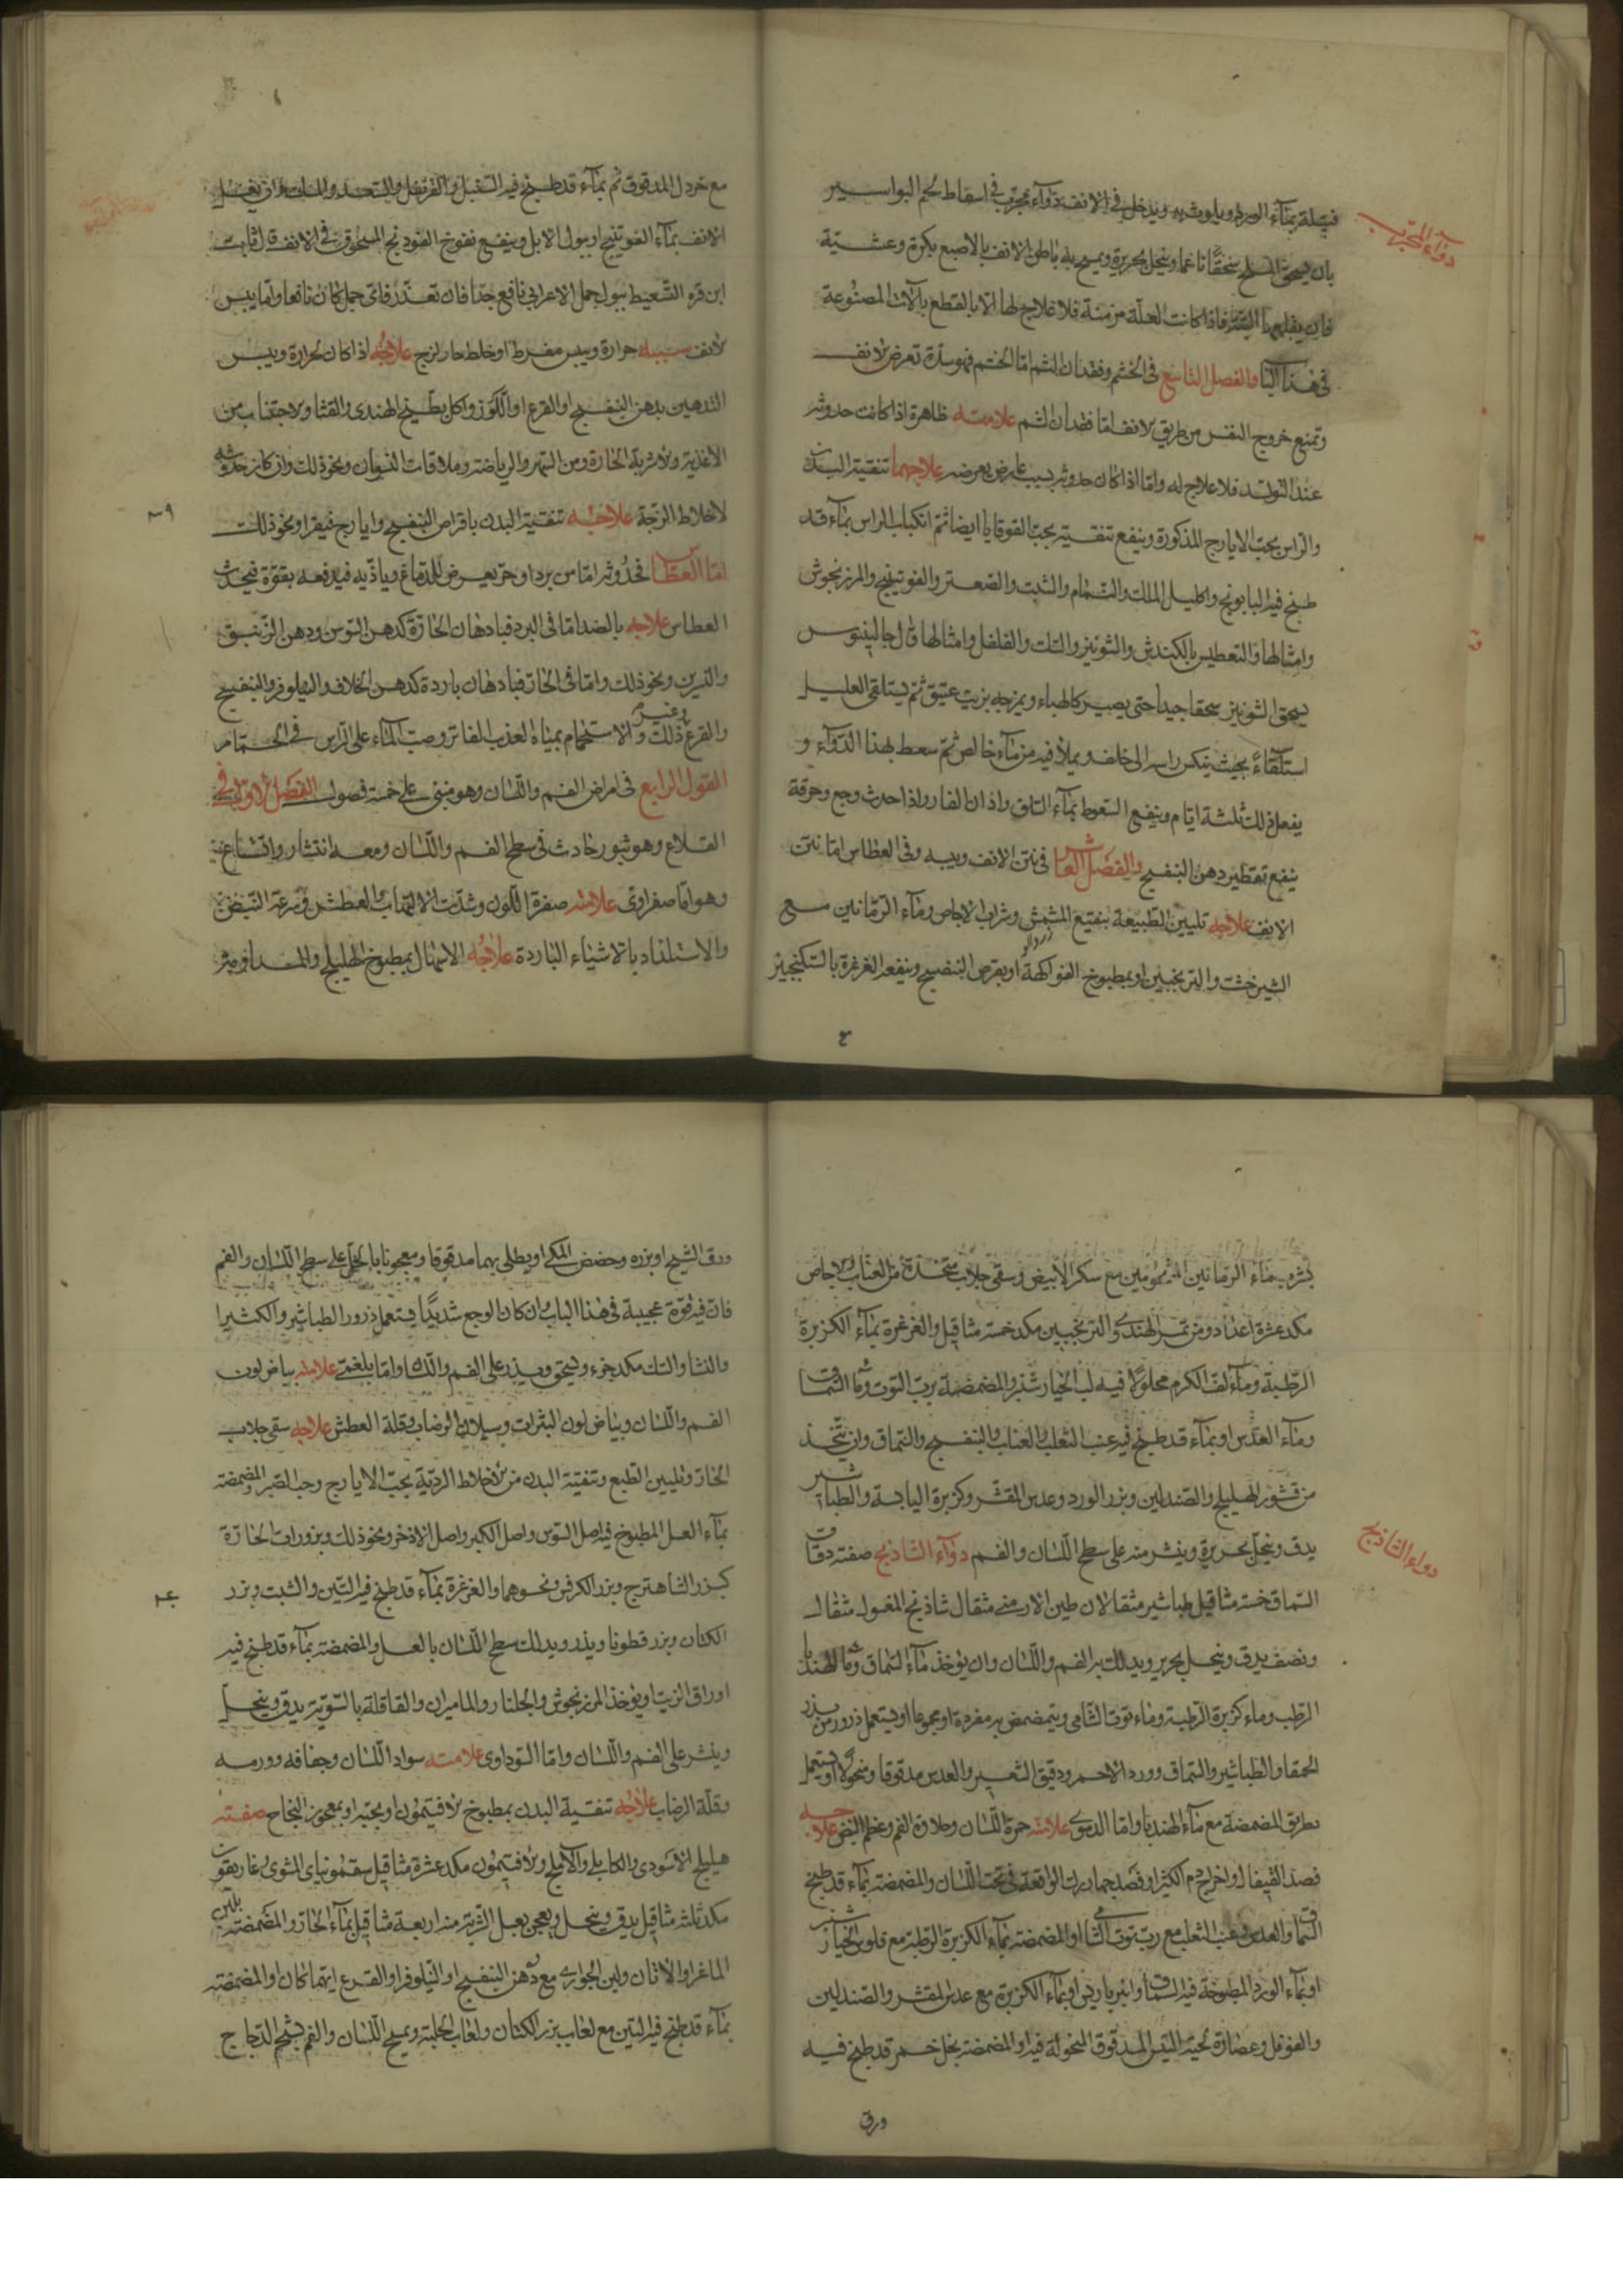 فتيلة بماء الورد ويلوث به ويدخل في الانف دواء مجرّب في اسقاط لحم البواسير
دواء المجرب
بان يسحق الملح سحقًا ناعما وينخل بحريرة ويمسح به باطن الانف بالاصبع بكرة وعشيّة
فان يقلعها فاذا كانت العلّة مزمنة فلا علاج لها الا بالقطع بآلات المصنوعة
في هذا البا والفصل التاسع في الخشم وفقدان الشم امّا الخشم فهو سدّة تعرض للانف
وتمنع خروج النفس من طريق الانف امّا فقدان الشم علامته ظاهرة اذا كانت حدوثه
عند التولد فلا علاج له وامّا اذا كان حدوثه بسبب عارض يعرضه علاجهما تنقية البدن
والراس بحب الايارج المذكورة وينفع تنقيته بحب القوقايا ايضا ثمّ انكباب الراس بماء قد
طبخ فيه البابونج واكليل الملك والنمّام والشبت والصعتر والفوتينج والمرزنجوش
وامثالها والتعطيس بالكندش والشونيز والفلفل وامثالها قال جالينوس
يسحق الشونيز سحقا جيدا حتى يصير كالهباء ويمزجه بزيت عتيق ثمّ يستلقي العليل
استلقاءً بحيث ينكس راسه الى خلف ويملأ فيه من ماء خالص ثمّ سعط بهذا الدواء و
يفعل ذلك ثلثة ايّام وينفع السعوط بماء السلق واذان الفار واذا حدث وجع وحرقة
ينفع تقطير دهن البنفسج والفصل العاشر في نتن الانف ويبسه وفي العطاس امّا نتن
الانف علاجه تليين الطبيعة بنقيع المشمش وشراب الاجاص وماء الرمّانين مع
زردالو
الشيرخشت والترنجبين او بمطبوخ الفواكهة او بقرص البنفسج وينفعه الغرغرة بالسكنجبين
مع خردل المدقوق ثم بماء قد طبخ فيه السنبل والقرنفل والسعد وان يغسل
الانف بماء الفوتينج او ببول الابل وينفع نفوخ الفودنج المسحوق في الانف قال ثابت
ابن قره السّعيط ببول جمل الاعرابي نافع جدّا فان تعذّر فاىّ جمل كان نافعا وامّا يبس
الانف سببه حرارة ويبس مفرط او خلط حار لزج علاجه اذا كان لحرارة ويبس
التدهين بدهن البنفسج او القرع او اللّوز واكل بطّيخ الهندى والقثا والاجتناب من
الاغذية والاشربة الحارّة ومن السّهر والرياضة وملاقات النسوان ونحو ذلك وان كان حدوثه
لاخلاط الزجة علاجه تنقية البدن باقراص البنفسج وايارج فيقرا ونحو ذلك
امّا العطاس فحدوثه امّا من برد او حرّ يعرض للدماغ ويأذّيه فيدفعه بقوّة فيحدث
العطاس علاجه بالضد امّا في البرد فبادهان الحارّة كدهن السّوسن ودهن الزنبق
والنسرين ونحو ذلك وامّا في الحارّ فبادهان باردة كدهن الخلاف والنيلوفر والبنفسج
والقرع وغير ذلك والاستحمام بمياه العذب الفاتر وصبّ الماء على الراس في الحمّام
القول الرابع في امراض الفم واللّسان وهو مبني على خمسة فصول الفصل الاوّل في
القلاع وهو بثور حادث في سطح الفم واللّسان ومعه انتشار واتساع
وهو امّا صفراوى علامته صفرة اللون وشدّت الالتهاب والعطش وسرعة النبض
والاستلذاد بالاشياء الباردة علاجه الاسهال بمطبوخ الهليلج
بشربه بماء الرمّانين المشحومين مع سكر الابيض وسقى جلاب متّخذة من العنّاب والاجاص
مكد عشرة اعداد ومن تمر الهندى والترنجبين مكد خمسة مثاقيل والغرغرة بماء الكزبرة
الرطبة وماء لفّ الكرم محلولا فيه لب الخيارشنبر والمضمضة بربّ التوت وماء السّماق
وماء العدس او بماء قد طبخ فيه عنب الثعلب والعناب والبنفسج والسماق وان يتّخذ
من قشور الهليلج والصندلين وبزر الورد وعدس المقشّر وكزبرة اليابسة والطباشير
يدق وينخل بحريرة وينشر منه على سطح اللّسان والفم دواء الشاذنج صفته دقاق
دواء الشاذنج
السّماق خمسة مثاقيل طباشير مثقالان طين الارمنى مثقال شاذنج المغسول مثقال
ونصف يدق وينخل بحرير ويدلك به الفم واللّسان وان يؤخذ ماء السّماق وماء الهندبا
الرطب وماء كزبرة الرطبة وماء توت الشّامى ويتمضمض به مفردة او مجموعا او يستعمل ذرور من بذر
الحمقا والطباشير والسّماق وورد الاحمر ودقيق الشعير والعدس مدقوقا ومنخولا او يستعمل
بطريق المضمضة مع ماء الهندبا وامّا الدموى علامته حمرة اللّسان وحلاوة الفم وعظم النبض علاجه
فصد القيفال واخراج دم الكثير او فصد چهار رك الواقعة في تحت اللّسان والمضمضة بماء قد طبخ
السّماق والعدس وعنب الثعلب مع ربّ توت الشّامى او المضمضة بماء الكزبرة الرطبة مع فلوس الخيارشنبر
او بماء الورد المطبوخة فيه السّماق وانبرباريس او بماء الكزبرة مع عدس المقشر والصندلين
والفوفل وعصارة لحية التيس المدقوق المنخولة فيه او المضمضة بخل خمر قد طبخ فيه
ورق
ورق الشيح او بزره وحضض المكى او يطلى بهما مدقوقا ومعجونا بالخل على سطح اللّسان والفم
فان فيه قوّة عجيبة في هذا الباب وان كان الوجع شديدًا يستعمل ذرور الطباشير والكثيرا
والنشا مكد جزء ويسحق ويذر على الفم واللّسان وامّا بلغمىّ علامته بياض لون
الفم واللّسان وبياض لون البثرات وسيلان الرضاب وقلّة العطش علاجه سقى جلاب
الحارّ وتليين الطبع وتنقية البدن من الاخلاط الرديّة بحبّ الايارج وحب الصبر والمضمضة
بماء العسل المطبوخ فيه اصل السّوسن واصل الكبر واصل الاذخر ونحو ذلك وبزورات الحارّة
كبزر الشاهترج وبزر الكرفس ونحوهما والغرغرة بماء قد طبخ فيه التّين والشبت وبزر
الكتان وبزر قطونا ويدلك سطح اللّسان بالعسل والمضمضة بماء قد طبخ فيه
اوراق الزيت او يؤخذ المرزنجوش والجلنار والماميران والقاقلة بالسّويّة يدق وينخل
وينشر على الفم واللّسان وامّا السّوداوى علامته سواد اللّسان وجفافه وورمه
وقلّة الرضاب علاجه تنقية البدن بمطبوخ الافتيمون او بحبّه او بمعجون النجاح صفته
هليلج الاسودى والكابلى والآملج والافتيمون مكد عشرة مثاقيل سقمونياى المشوى غاريقون
مكد ثلثة مثاقيل يدق وينخل ويعجن بعسل الشربة منه اربعة مثاقيل بماء الحارّ والمضمضة بلبن
الماعز او الاتان ولبن الجوارى مع دهن البنفسج او النّيلوفر او القرع ايّهما كان او المضمضة
بماء قد طبخ فيه التين مع لعاب بزر الكتان ولعاب الحلبة ويمسح اللّسان والفم بشحم الدجاج